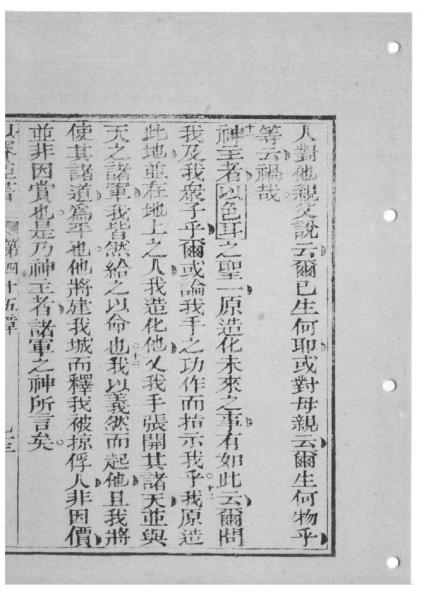 人對他親父說云爾已生何耶或對母親云爾生何物乎
等云禍哉
神主者以色耳之聖一原造化未來之事有如此云爾問
我及我衆子乎爾或論我手之功作而指示我乎我原造
此地並在地上之人我造化他又我手張開其諸天並與
天之諸軍我皆然給之以命也我以義然而起他且我將
使其諸道為平也他將建我城而釋我被掠俘人非因價
並非因賞也是乃神主者諸軍之神所言矣
第四十五章